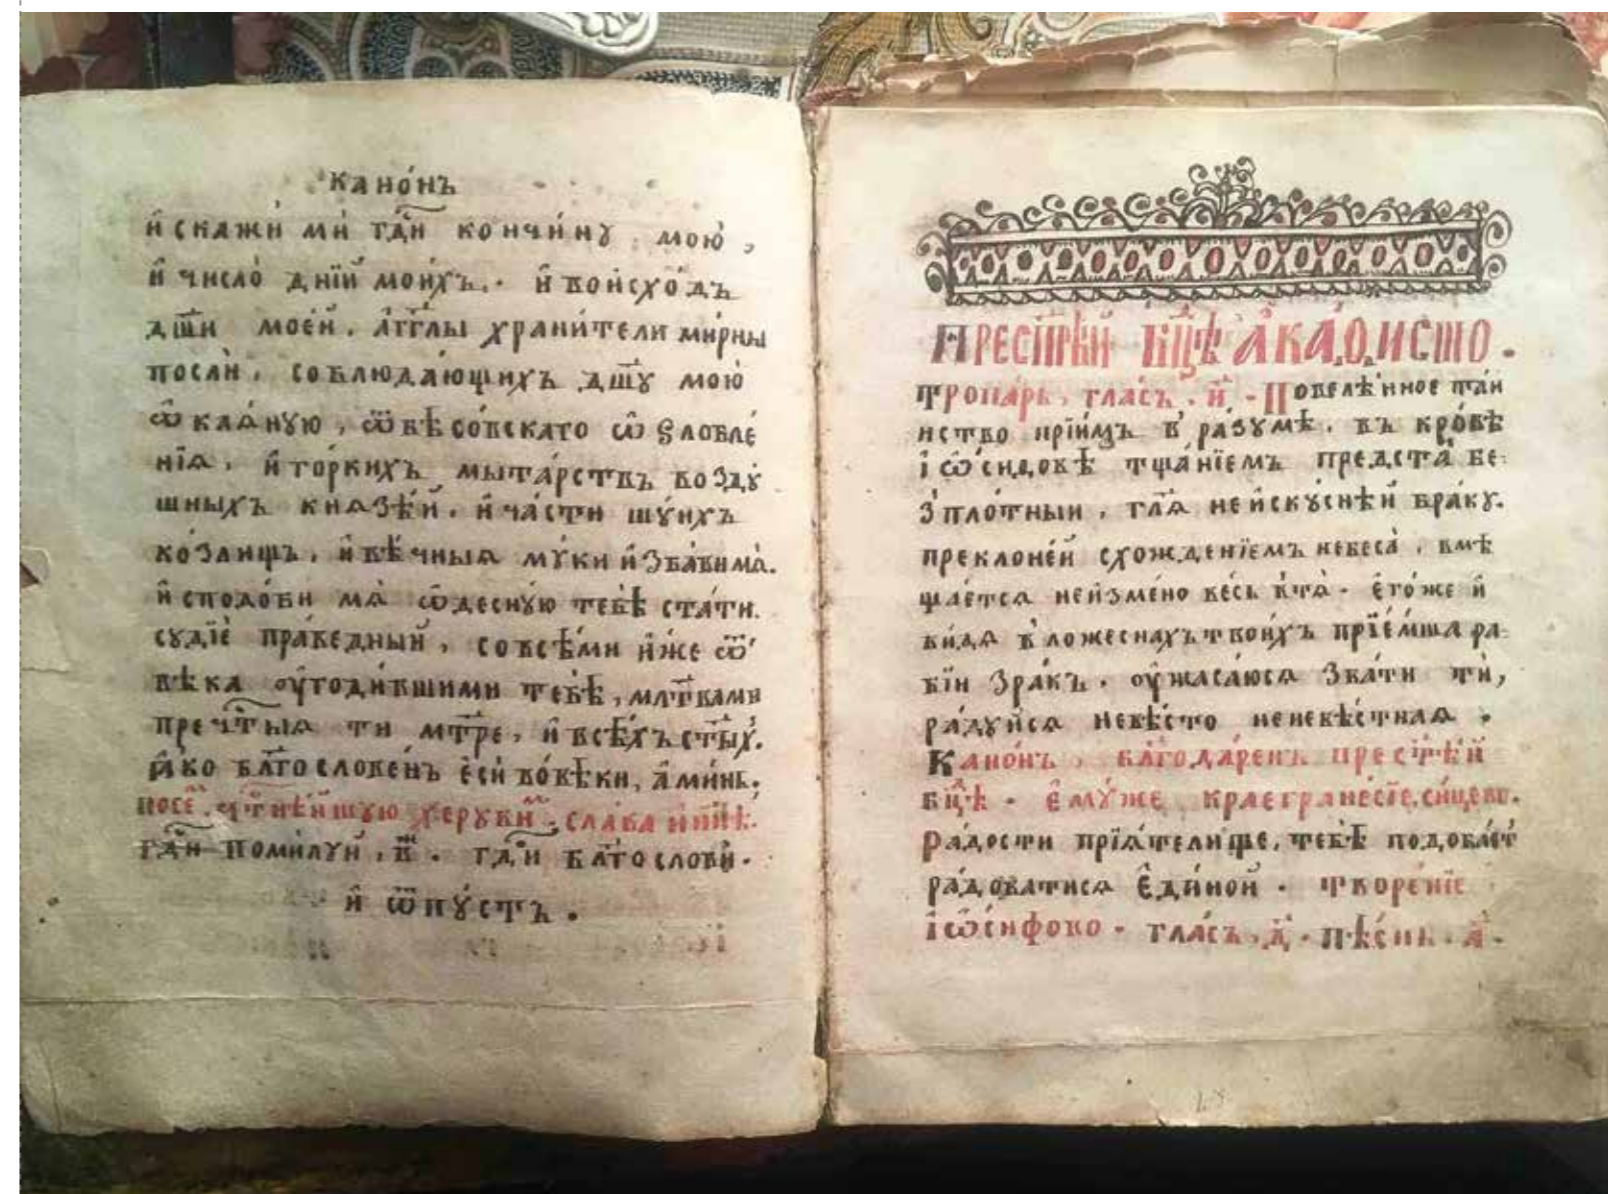 канѡ́нъ
и҆ скажи́ ми гдⷭ҇и кончи́ну мою̀,
и҆ число̀ дні́й мои́хъ. и҆ воисхо́дъ
дш҃и мое́й. а҆́гг҃лы храни́тели ми́рны
послѝ, соблюда́ющихъ дш҃у мою̀
ѡ҆кая́нную, ѿ бѣсо́вскаго ѡ҆ѕлобле́
нїѧ, и҆ го́ркихъ мыта́рствъ возду́
шныхъ кнѧзе́й. и҆ ча́сти шу́ихъ
ко́злищъ, и҆ вѣ́чныѧ му́ки и҆зба́ви мѧ̀.
и҆ сподо́би мѧ̀ ѡ҆десну́ю тебѣ̀ ста́ти.
судїѐ пра́ведный, со всѣ́ми и҆́же ѿ
вѣ́ка ᲂу҆годи́вшими тебѣ̀, млт҃вами
пречⷭ҇тыѧ ти мт҃ре, и҆ всѣ́хъ ст҃ы́х.
ꙗ҆́ко блгⷭ҇ослове́нъ є҆сѝ во́вѣки, а҆ми́нь.
посе́м чтⷭ҇нѣ́йшую херуви́м. сла́ва и҆ нн҃ѣ.
гдⷭ҇и поми́луй, в҃. гдⷭ҇и блгⷭ҇ословѝ.
и҆ ѿпу́стъ.
Прест҃ѣ́й бц҃ѣ а҆ка́ѳисто.
тропа́рь, гла́съ, и҃. Повелѣ́нное та́и
нство прїи́мъ в ра́зумѣ. въ кро́вѣ
і҆ѡ́сиѳовѣ тща́нїемъ предста̀ бе
зпло́тныи, гл҃ѧ неискуснѣ́й бра́ку.
преклоне́й схожде́нїемъ небеса̀, вмѣ
ща́етсѧ неизме́но ве́сь в тѧ̀. є҆го́же и҆
ви́дѧ в ложеснахъ твои́хъ прїе́мша ра
бїи зра́къ. ᲂу҆жаса́юсѧ зва́ти тѝ,
ра́дуйсѧ невѣ́сто неневѣ́стнаѧ.
Кано́нъ, благода́ренъ прест҃ѣ́й
бц҃ѣ. є҆му́же краегранесїе, си́цево.
Ра́дости прїѧ́телище, тебѣ̀ подоба́ет
ра́доватисѧ є҆ди́ной. творе́нїе
і҆ѡ́сифово. гла́съ, д҃. пѣ́снь. а҃.